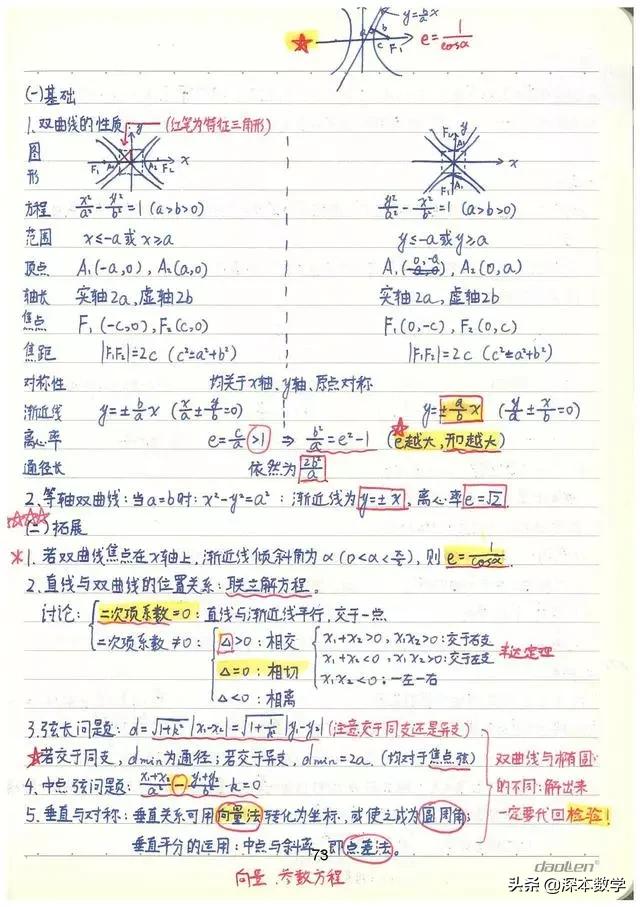 y=b/a x
☆ a b c F₁ e=1/cosα
(一)基础
1.双曲线的性质 (红笔为特征三角形)
图形 F₁ A₁ A₂ F₂ x y F₂ A₂ A₁ F₁ x y
方程 x²/a²-y²/b²=1 (a>b>0) y²/a²-x²/b²=1 (a>b>0)
范围 x≤-a或x≥a y≤-a或y≥a
顶点 A₁(-a,0),A₂(a,0) A₁(0,-a),A₂(0,a)
轴长 实轴2a,虚轴2b 实轴2a,虚轴2b
焦点 F₁(-c,0),F₂(c,0) F₁(0,-c),F₂(0,c)
焦距 |F₁F₂|=2c (c²=a²+b²) |F₁F₂|=2c (c²=a²+b²)
对称性 均关于x轴、y轴、原点对称
渐近线 y=±b/a x (x/a±y/b=0) y=±a/b x (y/a±x/b=0)
离心率 e=c/a>1 ⇒ b²/a²=e²-1 (e越大,开口越大)
通径长 依然为2b²/a
2.等轴双曲线:当a=b时:x²-y²=a²:渐近线为y=±x,离心率e=√2.
☆☆☆
(二)拓展
*1.若双曲线焦点在x轴上,渐近线倾斜角为α(0<α<π/2),则e=1/cosα.
2.直线与双曲线的位置关系:联立解方程。
讨论:二次项系数=0:直线与渐近线平行,交于一点
二次项系数≠0: △>0:相交 x₁+x₂>0,x₁x₂>0:交于右支
x₁+x₂<0,x₁x₂>0:交于左支 韦达定理
△=0:相切 x₁x₂<0:一左一右
△<0:相离
3.弦长问题:d=√(1+k²)|x₁-x₂|=√(1+1/k²)|y₁-y₂| (注意交于同支还是异支)
☆若交于同支,dmin为通径;若交于异支,dmin=2a.(均对于焦点弦)
4.中点弦问题:(x₁+x₂)/a²-(y₁+y₂)/b²·k=0
5.垂直与对称:垂直关系可用向量法转化为坐标,或使之成为圆周角;
垂直平分的运用:中点与斜率,即点差法。
双曲线与椭圆
的不同:解出来
一定要代回检验!
73
向量、参数方程
daolen®
头条@深本数学